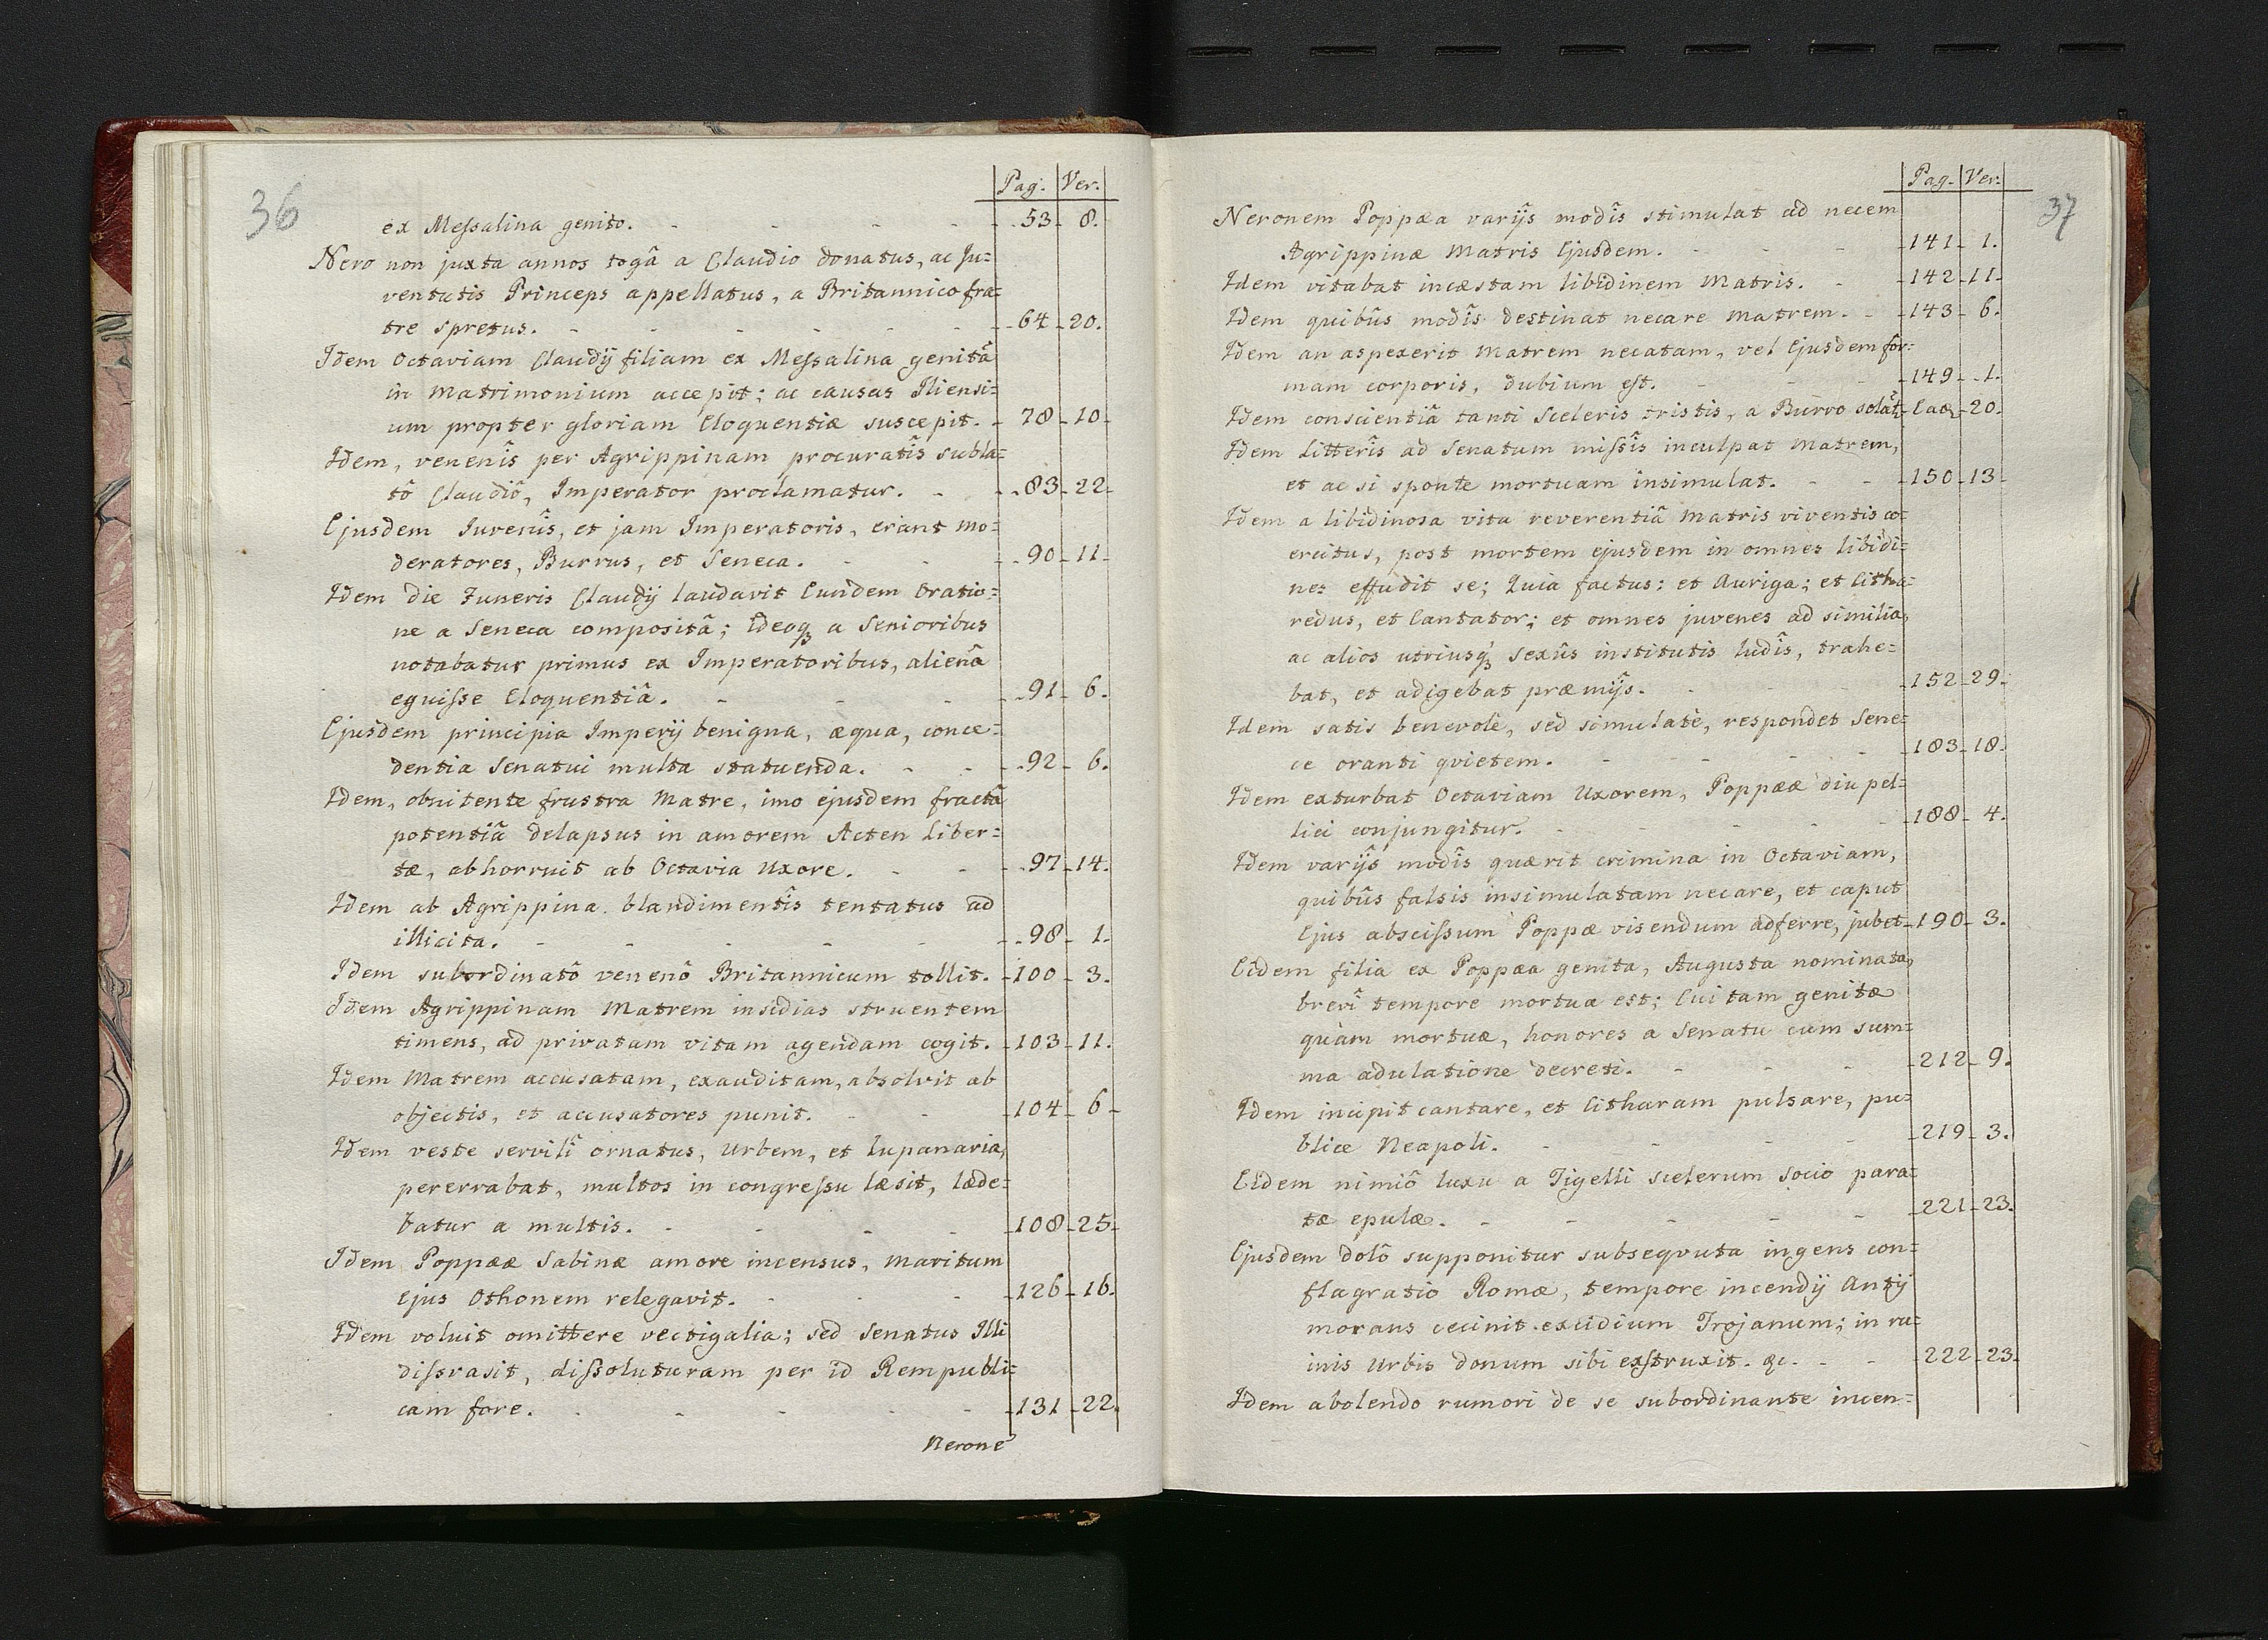 36
Pag. Ver.
ex Meſsalina genito. - - - - 53 - 8.
Nero non juxta annos togâ a Claudio donatus, ac Ju=
ventutis Princeps appellatus, a Britannico fra=
tre spretus. - - - - - - 64 - 20.
Idem Octaviam Claudÿ filiam ex Meſsalina genitâ
in Matrimonium accepit; ac causas Iliensi=
um propter gloriam Eloquentiæ suscepit. - 78 - 10.
Idem, venenîs per Agrippinam procuratîs subla=
tô Claudiô, Imperator proclamatur. - - 83 - 22.
Ejusdem Juvenîs, et jam Imperatoris, erant mo=
deratores, Burrus, et Seneca. - - - 90 - 11.
Idem die Funeris Claudÿ laudavit Eundem Oratio=
ne a Seneca compositâ; ideoqȝ a Senioribus
notabatur primus ex Imperatoribus, alienâ
eguiſse Eloquentiâ. - - - - 91 - 6.
Ejusdem principia Imperÿ benigna, æqua, conce=
dentia Senatui multa statuenda. - - - 92 - 6.
Idem, obnitente frustra Matre, imo ejusdem fractâ
potentiâ delapsus in amorem Acten Liber=
tæ, abhorruit ab Octavia Uxore. - - - 97 - 14.
Idem ab Agrippina blandimentîs tentatus ad
illicita. - - - - - - 98 - 1.
Idem subordinatô venenô Britannicum tollit. - 100 - 3.
Idem Agrippinam Matrem insidias struentem
timens, ad privatam vitam agendam cogit. - 103 - 11.
Idem Matrem accusatam, exauditam, absolvit ab
objectis, et accusatores punit. - - - 104 - 6 -
Idem veste servilî ornatus, Urbem, et lupanaria,
pererrabat, multos in congreſsu læsit, læde=
batur a multis. - - - - - 108 - 25.
Idem Poppææ Sabinæ amore incensus, maritum
Ejus Othonem relegavit. - - - 126 - 16.
Idem voluit omittere vectigalia; sed Senatus Illi
diſsvasit, diſsoluturam per id Rempubli=
cam fore. - - - - - - 131 - 22.
Nerone
37
Pag. Ver.
Neronem Poppæa varÿs modîs stimulat ad necem
Agrippinæ Matris Ejusdem. - - - 141 - 1.
Idem vitabat incæstam libidinem Matris. - - 142 - 11.
Idem quibûs modîs destinat necare Matrem. - - 143 - 6.
Idem an aspexerit Matrem necatam, vel Ejusdem for=
mam corporis, dubium eſt. - - - 149 - 1.
Idem conscientiâ tanti Sceleris tristis, a Burro solat. - 20.
Idem Litterîs ad Senatum miſsîs inculpat Matrem,
et ac si sponte mortuam insimulat. - - - 150 - 13
Idem a libidinosa vita reverentiâ Matris viventis co=
ercitus, post mortem ejusdem in omnes libidi=
nes effudit se; Quia factus: et Auriga; et Citha=
redus, et Cantator; et omnes juvenes ad similia,
ac alios utriusqȝ sexûs institutis ludîs, trahe=
bat, et adigebat præmÿs. - - - 152 - 29.
Idem satis benevolè, sed simulatè, respondet Sene=
ce oranti qvietem. - - - - 183 - 18.
Idem exturbat Octaviam Uxorem, Poppææ diu pel=
lici conjungitur. - - - - 188 - 4.
Idem varÿs modîs quærit crimina in Octaviam,
quibûs falsis insimulatam necare, et caput
Ejus absciſsum Poppæ visendum adferre, jubet - 190 - 3.
Eidem filia ex Poppæa genita, Augusta nominata,
brevî tempore mortua est; Cui tam genitæ
quàm mortuæ, honores a Senatu cum sum=
ma adulatione decreti. - - - - 212 - 9.
Idem incipit cantare, et Citharam pulsare, pu=
blice Neapoli. - - - - - 219 - 3.
Eidem nimiô luxu a Tigelli scelerum socio para=
tæ epulæ. - - - - - 221 - 23.
Ejusdem dolô supponitur subseqvuta ingens con=
flagratio Romæ, tempore incendÿ Antÿ
morans cecinit excidium Trojanum; in ru=
inis Urbis donum sibi exſtruxit. &c. - - - 222 - 23.
Idem abolendo rumori de se subordinante incen=